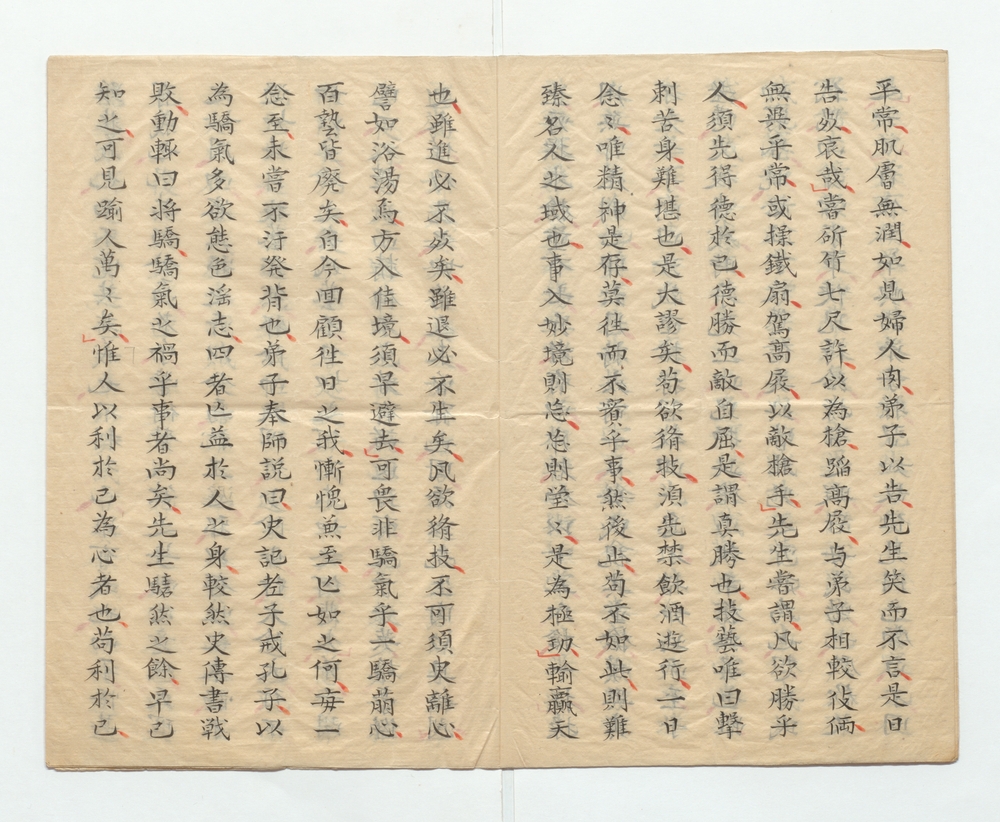 平常肌膚無潤如見婦人肉弟子以告先生笑而不言是日
告歿哀哉嘗斫竹七尺許以為槍蹈高屐与弟子相較伎倆
無異乎常或揉鐵扇駕高屐以敵槍手先生嘗謂凡欲勝乎
人須先得德於己德勝而敵自屈是謂真勝也技藝唯曰擊
刺苦身難堪也是大謬矣苟欲脩技須先禁飲酒遊行一日
念〻唯精神是存莫往而不賓乎事然後止苟不如此則難
臻名人之域也事入妙境則忩忩則堂〻是為極劫輸贏天
也雖進必不歿矣雖退必不生矣凡欲脩技不可須臾離心
譬如浴湯焉方入佳境須早避去可畏非驕氣乎一驕萠心
百藝皆廃矣自今回顧徃日之我慚愧兼至亾如之何毎一
念至未嘗不汙発背也弟子奉師説曰史記老子戒孔子以
為驕氣多欲態色滛志四者亾益於人之身較然史傳書戦
敗動輙曰将驕驕氣之禍乎事者尚矣先生驕然之餘早已
知之可見踰人萬〻矣惟人以利於己為心者也苟利於己